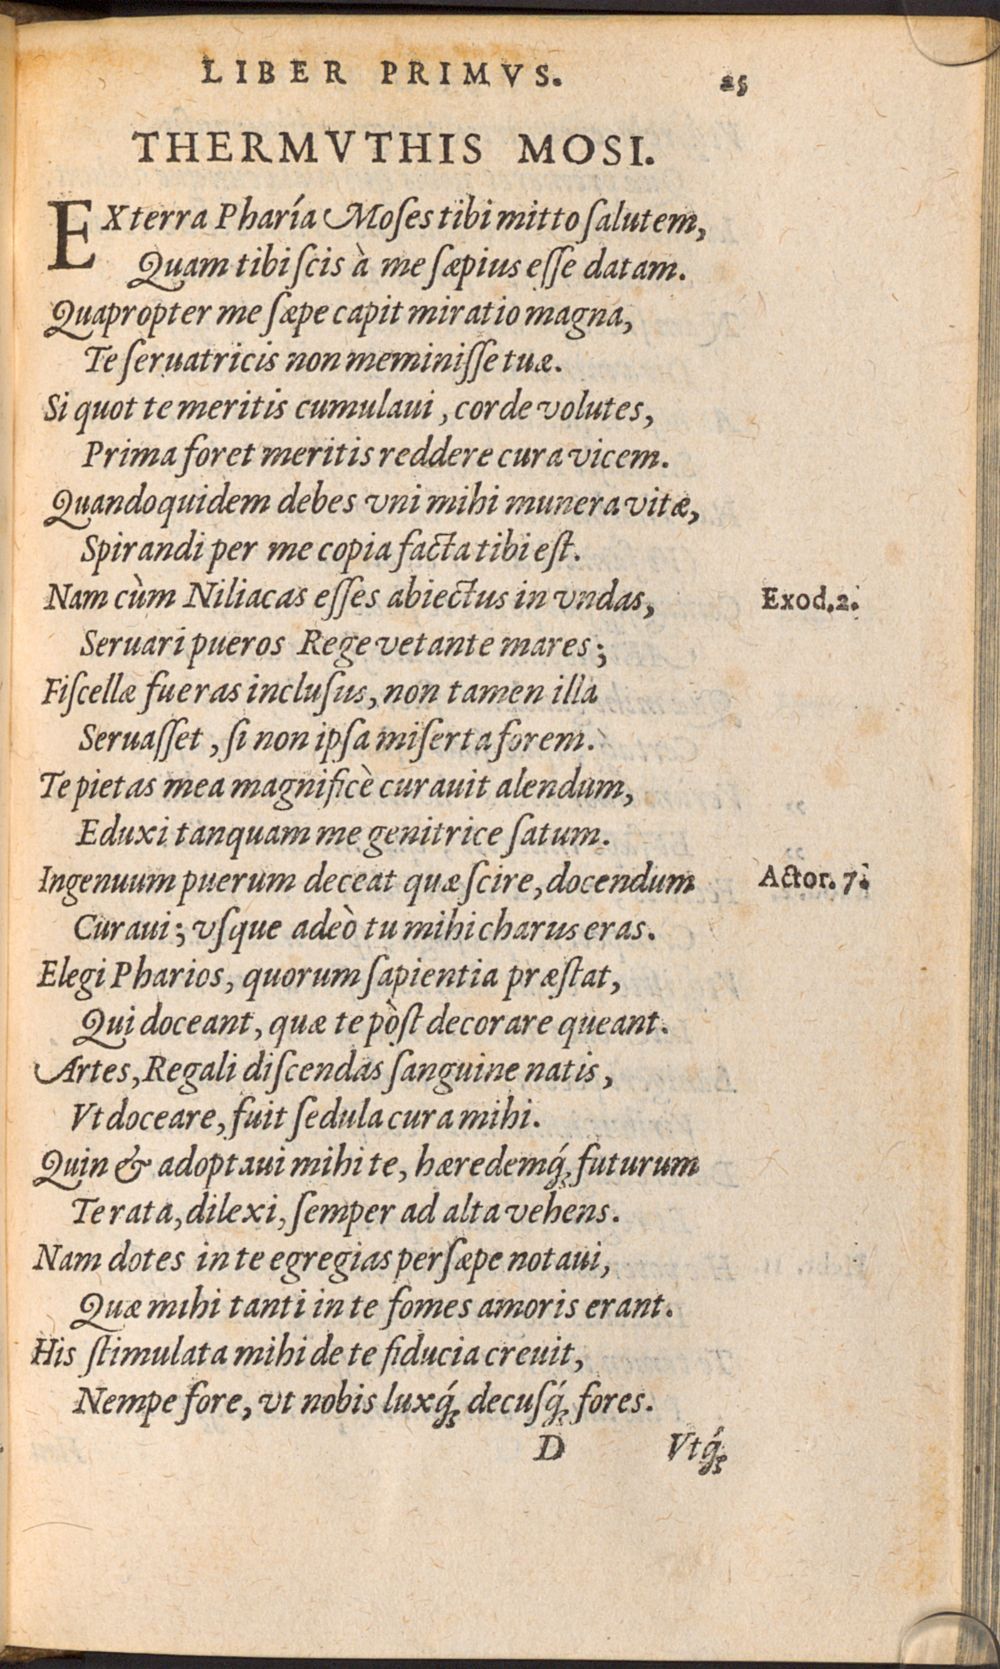 LIBER PRIMVS. 25
THERMVTHIS MOSI.
EX terra Pharía Moſes tibi mitto ſalutem,
Quam tibi ſcis à me ſæpius eſſe datam.
Quapropter me ſæpe capit miratio magna,
Te ſeruatricis non meminiſſe tuæ.
Si quot te meritis cumulaui, corde volutes,
Prima foret meritis reddere cura vicem.
Quandoquidem debes vni mihi munera vitæ,
Spirandi per me copia facta tibi eſt.
Nam cùm Niliacas eſſes abiectus in vndas, Exod.2.
Seruari pueros Rege vetante mares;
Fiſcellæ fueras incluſus, non tamen illa
Seruaſſet, ſi non ipſa miſerta forem.
Te pietas mea magnificè curauit alendum,
Eduxi tanquam me genitrice ſatum.
Ingenuum puerum deceat quæ ſcire, docendum Actor. 7.
Curaui; vſque adeò tu mihi charus eras.
Elegi Pharios, quorum ſapientia præſtat,
Qui doceant, quæ te pòſt decorare queant.
Artes, Regali diſcendas ſanguine natis,
Vt doceare, fuit ſedula cura mihi.
Quin & adoptaui mihi te, hæredemq́; futurum
Te rata, dilexi, ſemper ad alta vehens.
Nam dotes in te egregias perſæpe notaui,
Quæ mihi tanti in te fomes amoris erant.
His ſtimulata mihi de te fiducia creuit,
Nempe fore, vt nobis luxq́; decuſq́; fores.
D Vtq́;